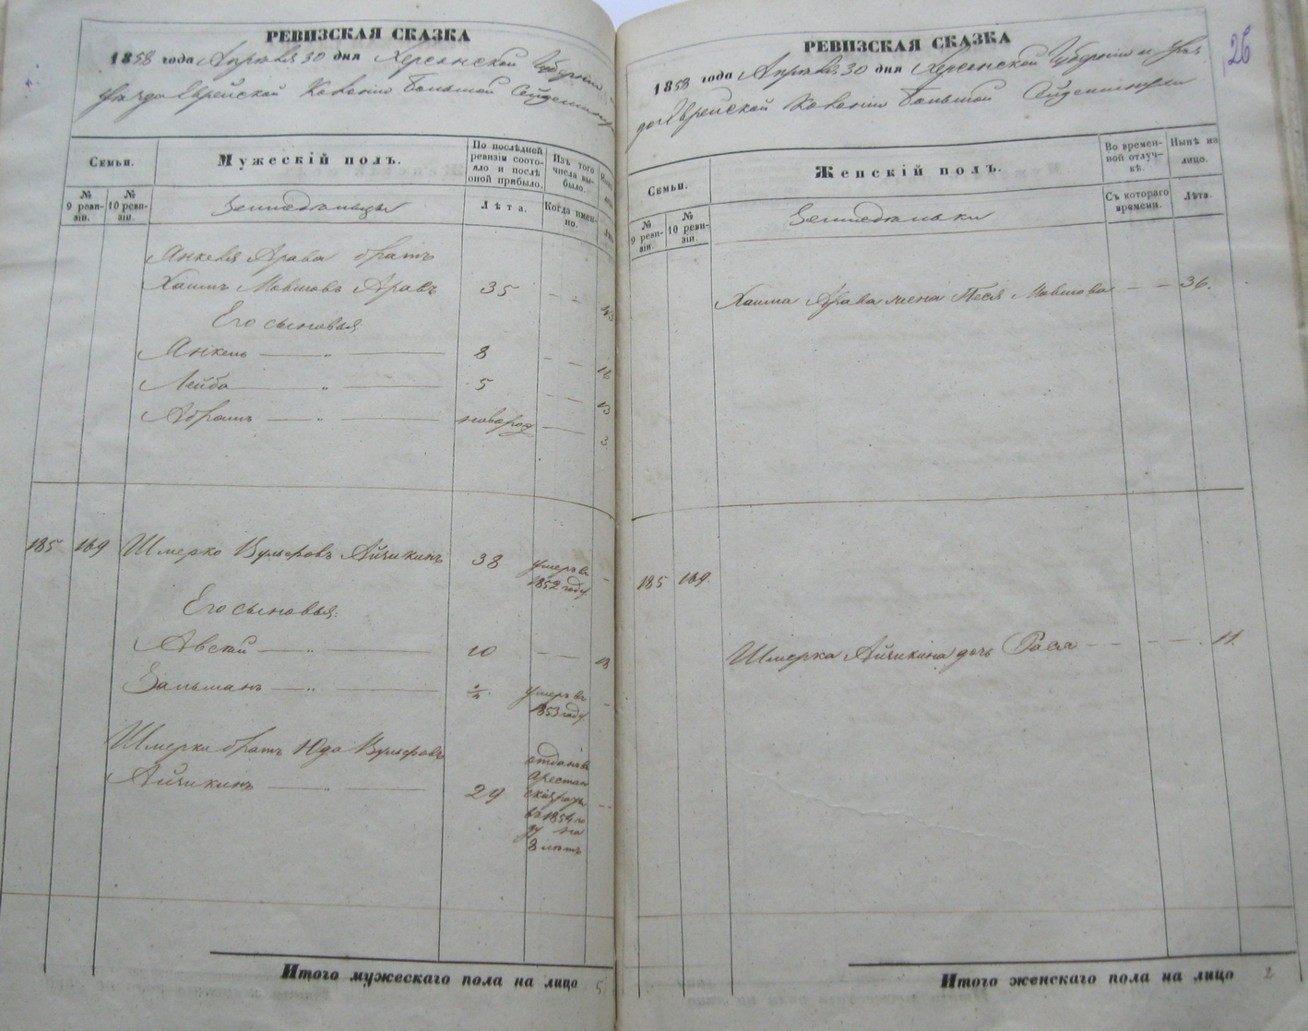 РЕВИЗСКАЯ СКАЗКА
1858 года Апреля 30 дня Херсонской Губерніи
уѣзда Еврейской Колоніи Большой Сейдеминухи
Семьи.
Мужескій полъ.
По послѣдней ревизіи состояло и послѣ оной прибыло.
Изъ того числа выбыло.
№ 9 ревизіи.
№ 10 ревизіи.
Земледѣльцы
Лѣта.
Когда именно.
Анкеля Арава братъ
Хаимъ Мовшовъ Аравъ 35
Его сыновья
Анкель — „ — 8
Лейба — „ — 5 13
Абрамъ — „ — новорож 3
185 169 Шмерко Вульфовъ Айзикинъ 38 умеръ въ 1852 году
Его сыновья:
Авсѣй — „ — 10 18
Зальманъ — „ — умеръ въ 1853 году
Шмерки братъ Юда Вульфовъ
Айзикинъ — „ — 29 отданъ въ арестан въ 1854 году на 8 лѣтъ
Итого мужескаго пола на лицо 5
26
РЕВИЗСКАЯ СКАЗКА
1858 года Апреля 30 дня Херсонской Губерніи и уѣз
да Еврейской Колоніи Большой Сейдеминухи
Семьи.
Женскій полъ.
Во временной отлучкѣ.
Нынѣ на лицо.
№ 9 ревизіи.
№ 10 ревизіи.
Земледѣльки
Съ котораго времени.
Лѣта.
Хаима Арава жена Песя Мовшова — — 36.
185 169.
Шмерка Айзикина дочь Рася — — 11.
Итого женскаго пола на лицо 2